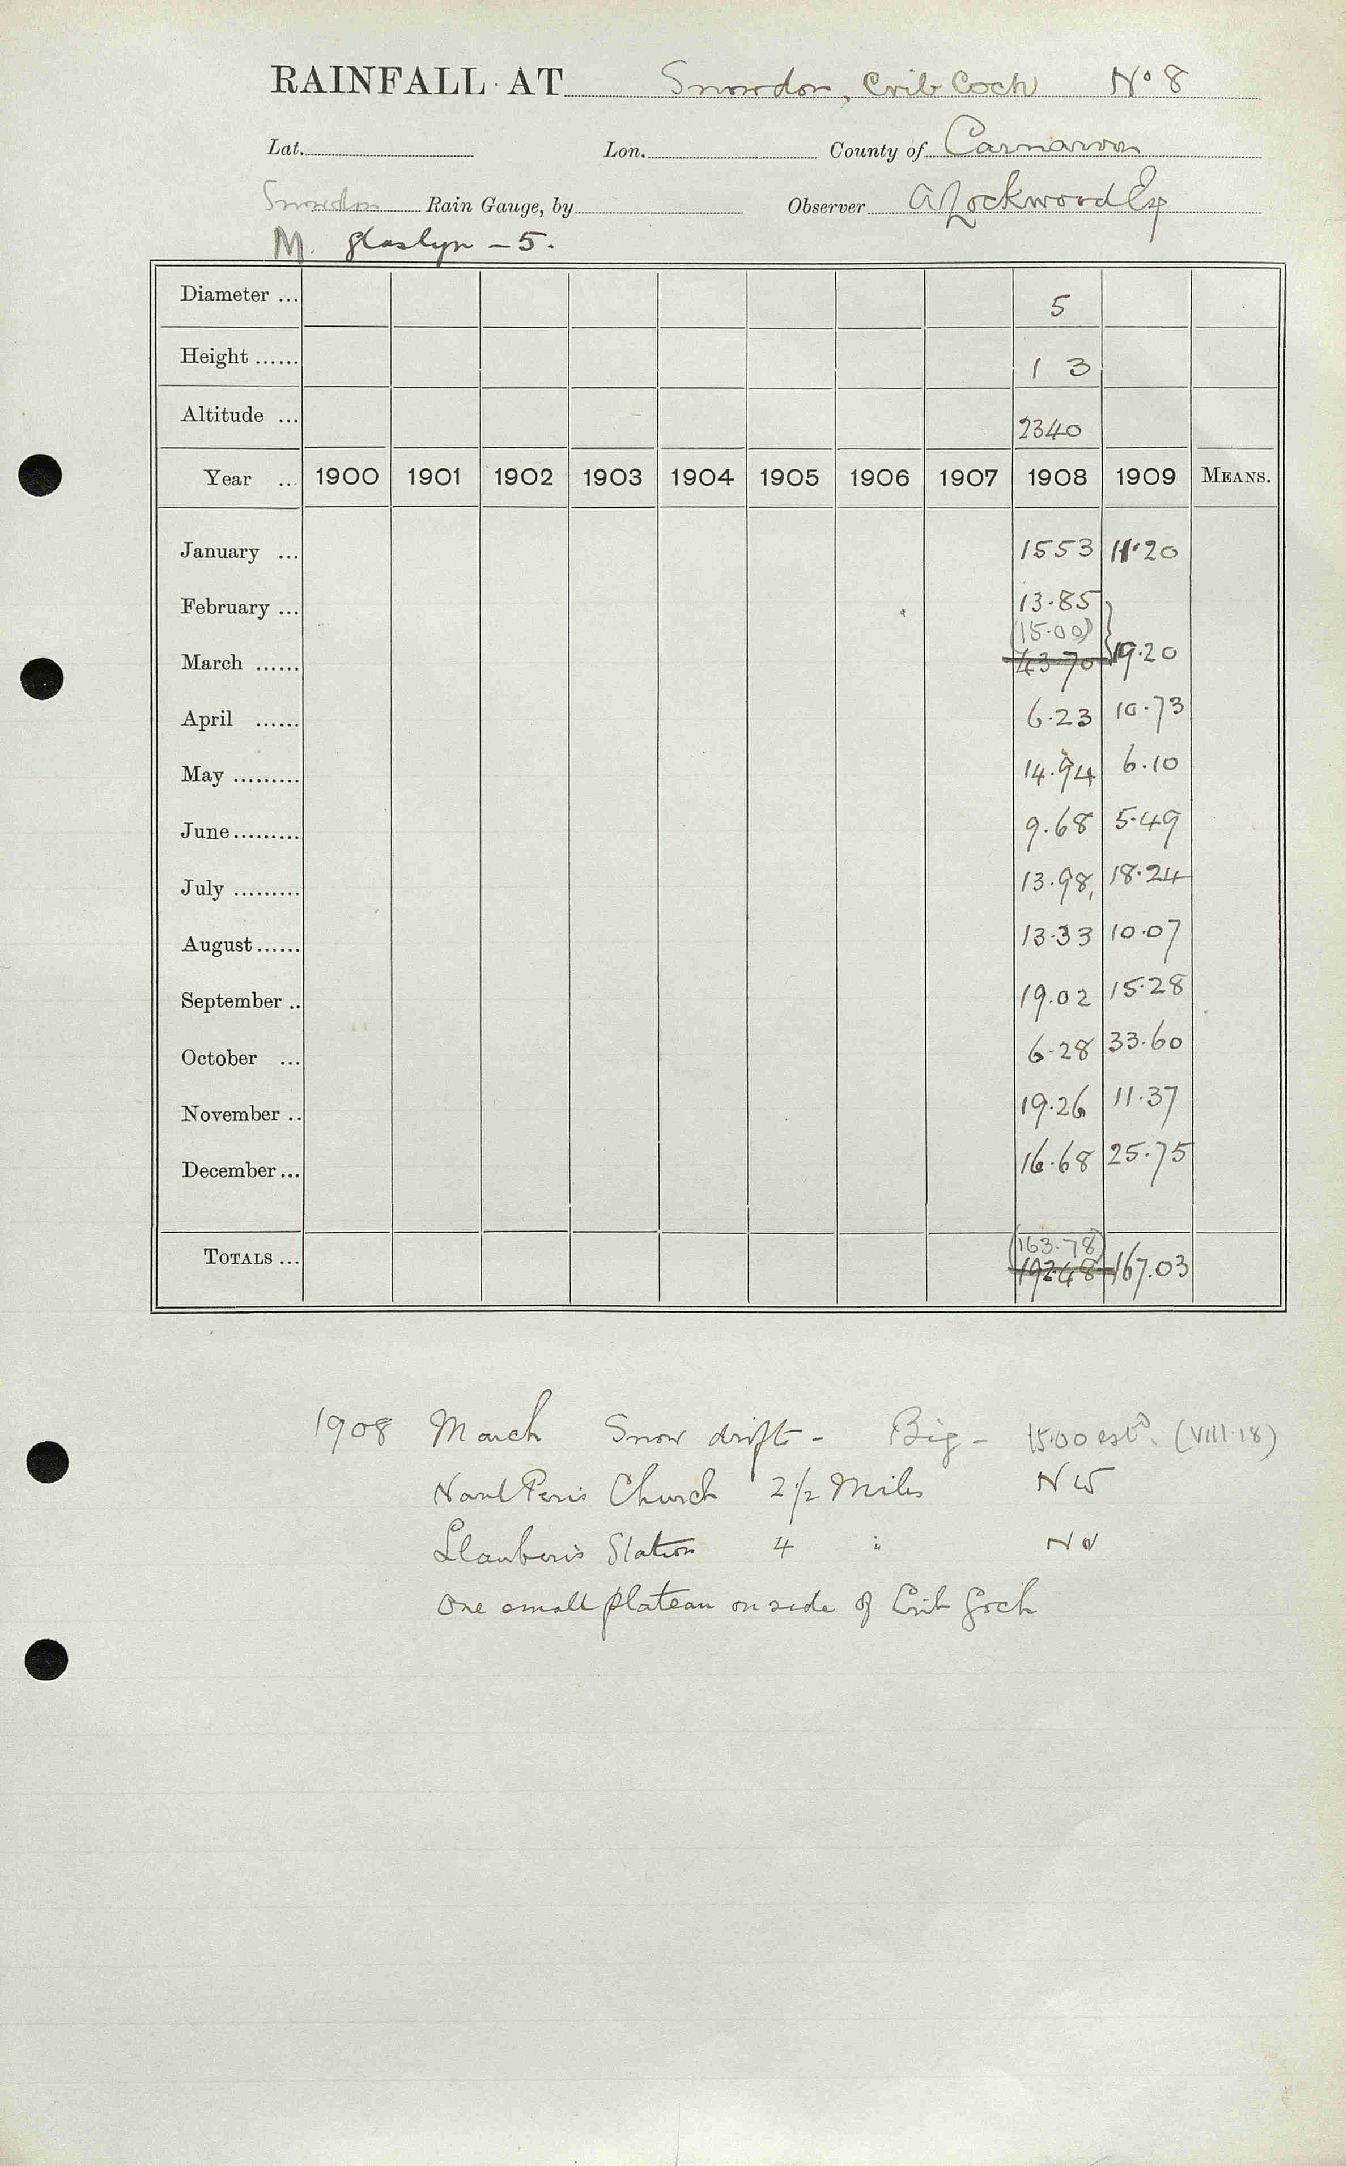 RAINFALL AT Snowdon, Crib Coch No 8
Lat. Lon. County of Carnarvon
Snowdon Rain Gauge, by Observer A Lockwood Esq
M. glaslyn - 5.
Diameter ... 5
Height ...... 1 3
Altitude ... 2340
Year ... 1900 1901 1902 1903 1904 1905 1906 1907 1908 1909 MEANS.
January ... 1553 11.20
February ... 13.85
(15.00)
March ...... 43.70 19.20
April ...... 6.23 10.73
May ......... 14.94 6.10
June ......... 9.68 5.49
July ......... 13.98 18.24
August ...... 13.33 10.07
September .. 19.02 15.28
October ... 6.28 33.60
November .. 19.26 11.37
December ... 16.68 25.75
(163.78)
TOTALS ... 192.48 167.03
1908 March Snow drift - Big - 15.00 estd. (VIII.18)
Nant Peris Church 2 1/2 Miles NW
Llanberis Station 4 " NW
One small plateau on side of Crib Goch